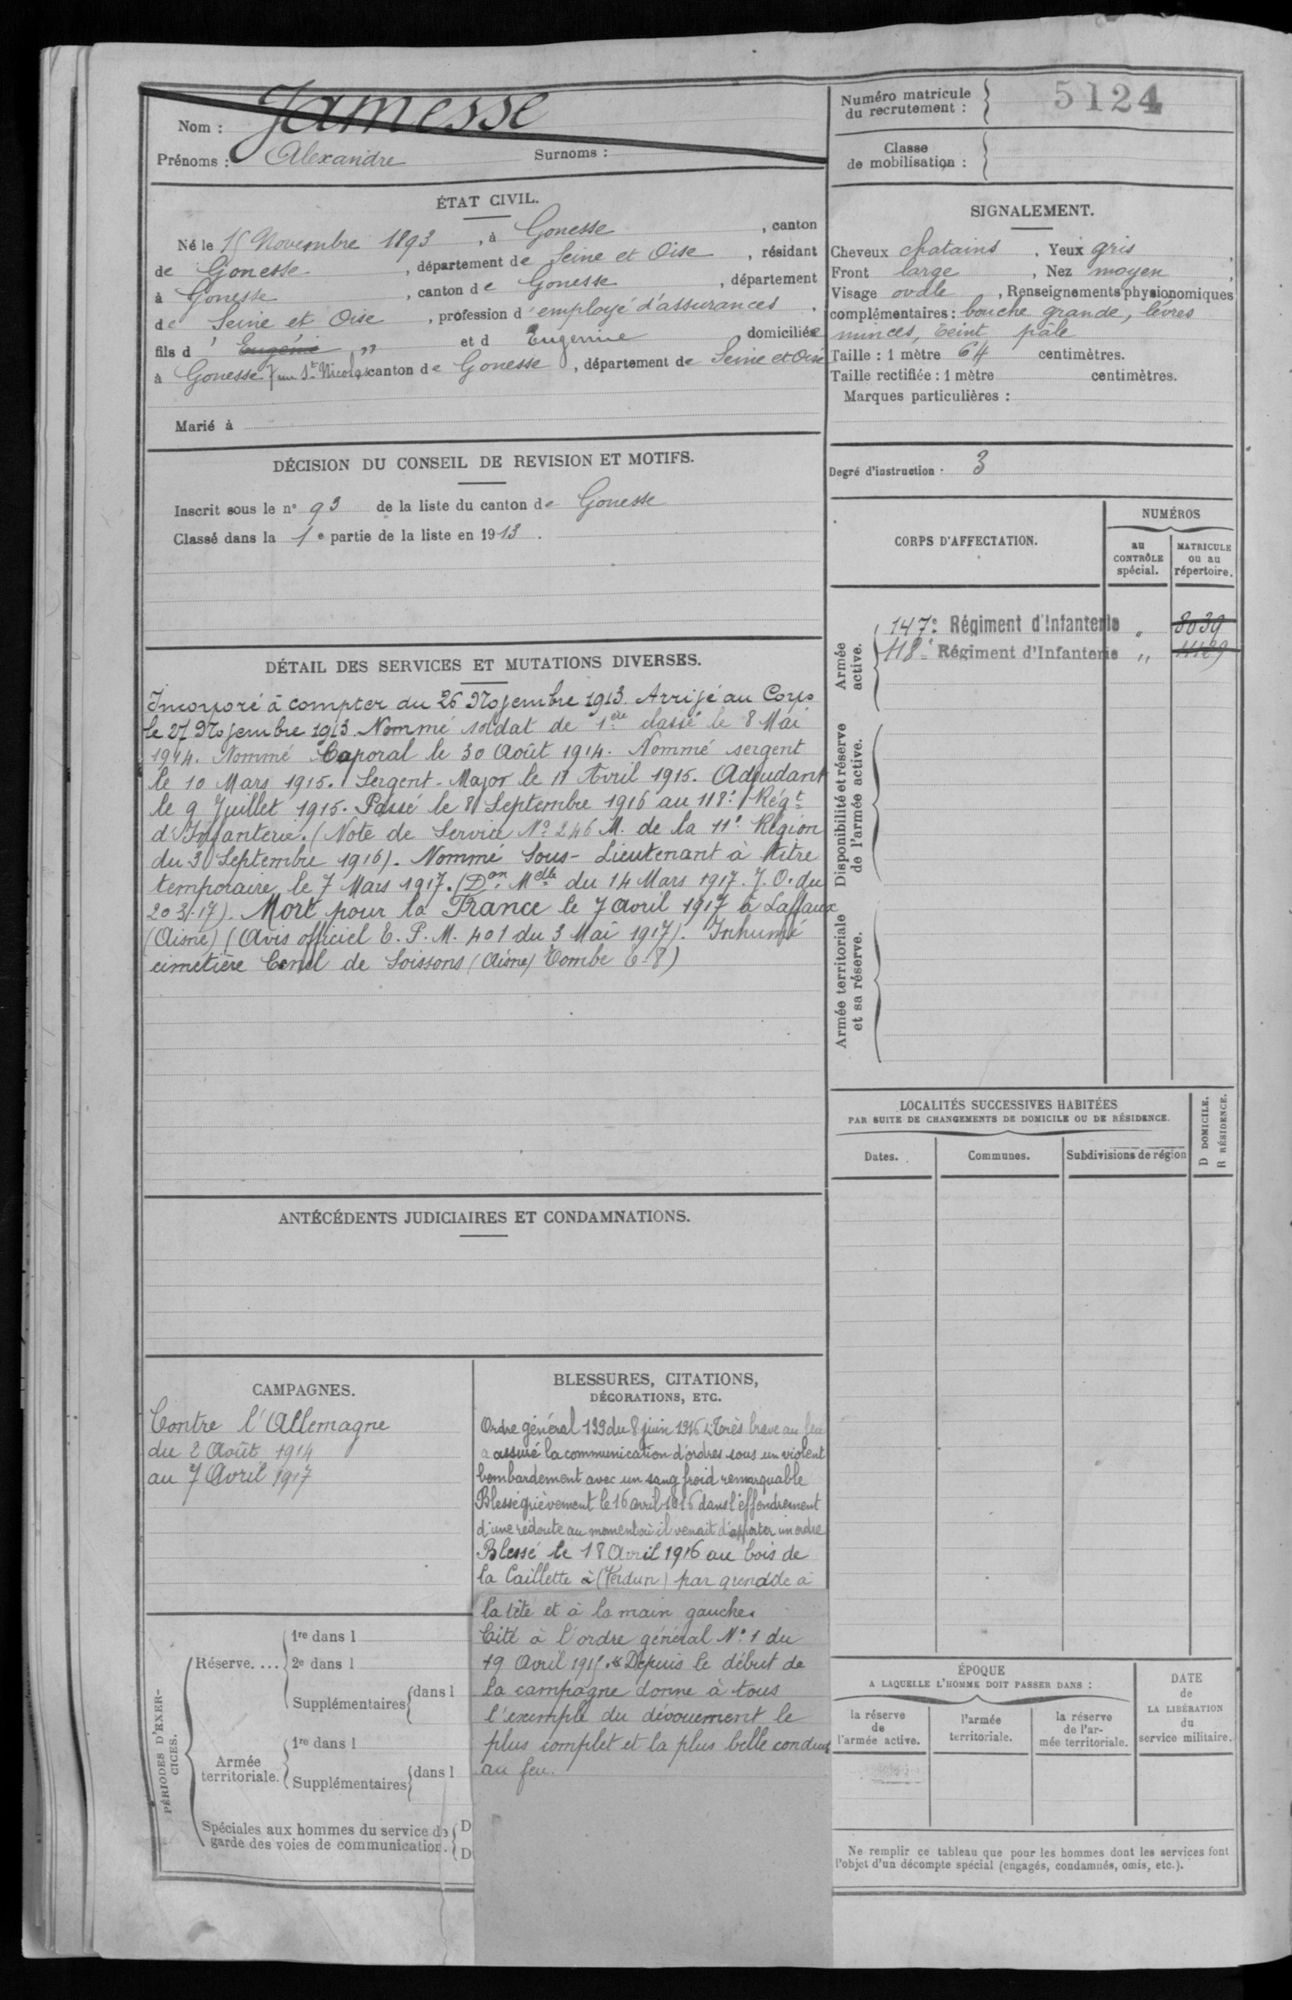 Nom : Jamesse
Prénoms : Alexandre Surnoms :
Numéro matricule
du recrutement : 5124
Classe
de mobilisation :
ÉTAT CIVIL.
Né le 15 Novembre 1893, à Gonesse, canton
de Gonesse, département de Seine et Oise, résidant
à Gonesse, canton de Gonesse, département
de Seine et Oise, profession d'employé d'assurances,
fils d' Eugénie " et d Eugénie domiciliée
à Gonesse, St Nicolas canton de Gonesse, département de Seine et Oise
Marié à
SIGNALEMENT.
Cheveux chatains, Yeux gris,
Front large, Nez moyen,
Visage ovale, Renseignements physionomiques
complémentaires : bouche grande, lèvres
minces, teint pâle
Taille : 1 mètre 64 centimètres.
Taille rectifiée : 1 mètre centimètres.
Marques particulières :
Degré d'instruction : 3
DÉCISION DU CONSEIL DE REVISION ET MOTIFS.
Inscrit sous le n° 93 de la liste du canton de Gonesse
Classé dans la 1e partie de la liste en 1913.
DÉTAIL DES SERVICES ET MUTATIONS DIVERSES.
Incorporé à compter du 26 Novembre 1913. Arrivé au Corps
le 27 Novembre 1913. Nommé soldat de 1ère classe le 8 Mai
1914. Nommé Caporal le 30 Août 1914. Nommé sergent
le 10 Mars 1915. Sergent-Major le 11 Avril 1915. Adjudant
le 9 Juillet 1915. Passé le 8 Septembre 1916 au 118e Régt
d'Infanterie. (Note de Service No 246 M. de la 11e Région
du 3 Septembre 1916). Nommé Sous-Lieutenant à titre
temporaire le 7 Mars 1917. (Don Melle du 14 Mars 1917. J.O. du
20.3.17). Mort pour la France le 7 avril 1917 à Laffaux
(Aisne) (Avis officiel E.P.M. 401 du 3 Mai 1917). Inhumé
cimetière Cenel de Soissons (Aisne) Tombe 6-8)
CORPS D'AFFECTATION.
NUMÉROS
au
CONTRÔLE
spécial.
MATRICULE
ou au
répertoire.
Armée
active.
147e Régiment d'Infanterie " 8039
118e Régiment d'Infanterie " 11129
Disponibilité et réserve
de l'armée active.
Armée territoriale
et sa réserve.
LOCALITÉS SUCCESSIVES HABITÉES
PAR SUITE DE CHANGEMENTS DE DOMICILE OU DE RÉSIDENCE.
Dates. Communes. Subdivisions de région
D DOMICILE.
R RÉSIDENCE.
ANTÉCÉDENTS JUDICIAIRES ET CONDAMNATIONS.
CAMPAGNES.
Contre l'Allemagne
du 2 Août 1914
au 7 Avril 1917
BLESSURES, CITATIONS,
DÉCORATIONS, ETC.
Ordre général 139 du 8 juin 1916 "Très brave au feu
a assuré la communication d'ordres sous un violent
bombardement avec un sang froid remarquable
Blessé grièvement le 16 avril 1916 dans l'effondrement
d'une redoute au moment où il venait d'apporter un ordre
Blessé le 18 Avril 1916 au bois de
la Caillette à (Verdun) par grenade à
la tête et à la main gauche.
Cité à l'ordre général No 1 du
19 Avril 1915. "Depuis le début de
la campagne donne à tous
l'exemple du dévouement le
plus complet et la plus belle conduite
au feu.
PÉRIODES D'EXER-
CICES.
Réserve....
1re dans l
2e dans l
Supplémentaires dans l
Armée
territoriale.
1re dans l
Supplémentaires dans l
Spéciales aux hommes du service de
garde des voies de communication.
D
D
ÉPOQUE
A LAQUELLE L'HOMME DOIT PASSER DANS :
la réserve
de
l'armée active.
l'armée
territoriale.
la réserve
de l'ar-
mée territoriale.
DATE
de
LA LIBÉRATION
du
service militaire.
Ne remplir ce tableau que pour les hommes dont les services font
l'objet d'un décompte spécial (engagés, condamnés, omis, etc.).